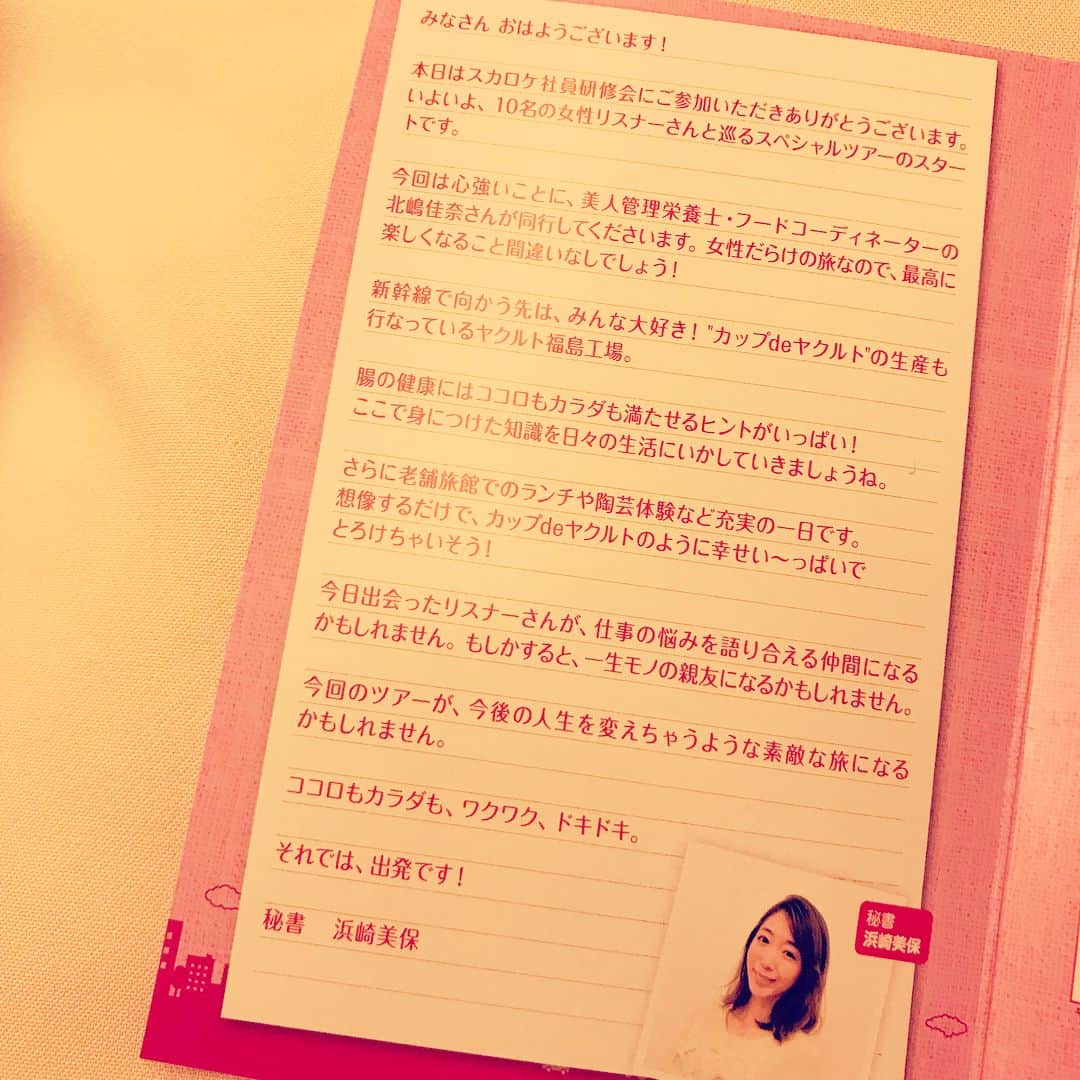 みなさん おはようございます!
本日はスカロケ社員研修会にご参加いただきありがとうございます。
いよいよ、10名の女性リスナーさんと巡るスペシャルツアーのスター
トです。
今回は心強いことに、美人管理栄養士・フードコーディネーターの
北嶋佳奈さんが同行してくださいます。女性だらけの旅なので、最高に
楽しくなること間違いなしでしょう!
新幹線で向かう先は、みんな大好き!"カップdeヤクルト"の生産も
行なっているヤクルト福島工場。
腸の健康にはココロもカラダも満たせるヒントがいっぱい!
ここで身につけた知識を日々の生活にいかしていきましょうね。
さらに老舗旅館でのランチや陶芸体験など充実の一日です。
想像するだけで、カップdeヤクルトのように幸せい〜っぱいで
とろけちゃいそう!
今日出会ったリスナーさんが、仕事の悩みを語り合える仲間になる
かもしれません。もしかすると、一生モノの親友になるかもしれません。
今回のツアーが、今後の人生を変えちゃうような素敵な旅になる
かもしれません。
ココロもカラダも、ワクワク、ドキドキ。
それでは、出発です!
秘書 浜崎美保
秘書
浜崎美保